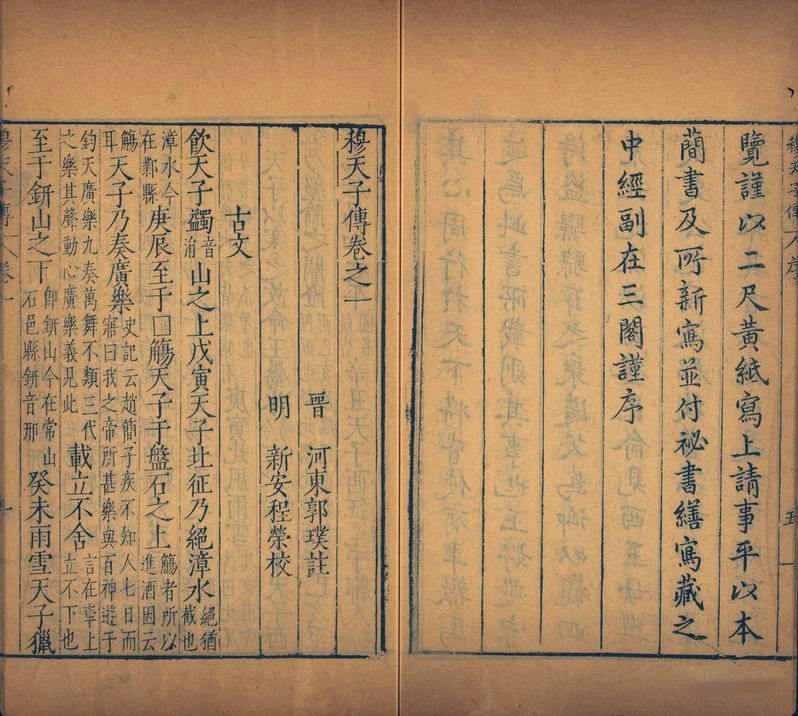 覽謹以二尺黃紙寫上請事平以本
蕳書及所新寫並付祕書繕寫藏之
中經副在三閣謹序
五
穆天子傳卷之一
晉 河東郭璞註
明 新安程榮校
古文
飲天子蠲音涓山之上戊寅天子北征乃絕漳水絕猶截也
漳水今在鄴縣庚辰至于□觴天子于盤石之上觴者所以進酒因云
觴耳天子乃奏廣樂史記云趙簡子疾不知人七日而寤曰我之帝所甚樂與百神遊于
鈞天廣樂九奏萬舞不類三代之樂其聲動心廣樂義見此載立不舍言在車上立不下也
至于鈃山之下即鈃山今在常山石邑縣鈃音邢癸未雨雪天子獵
穆天子傳 卷一